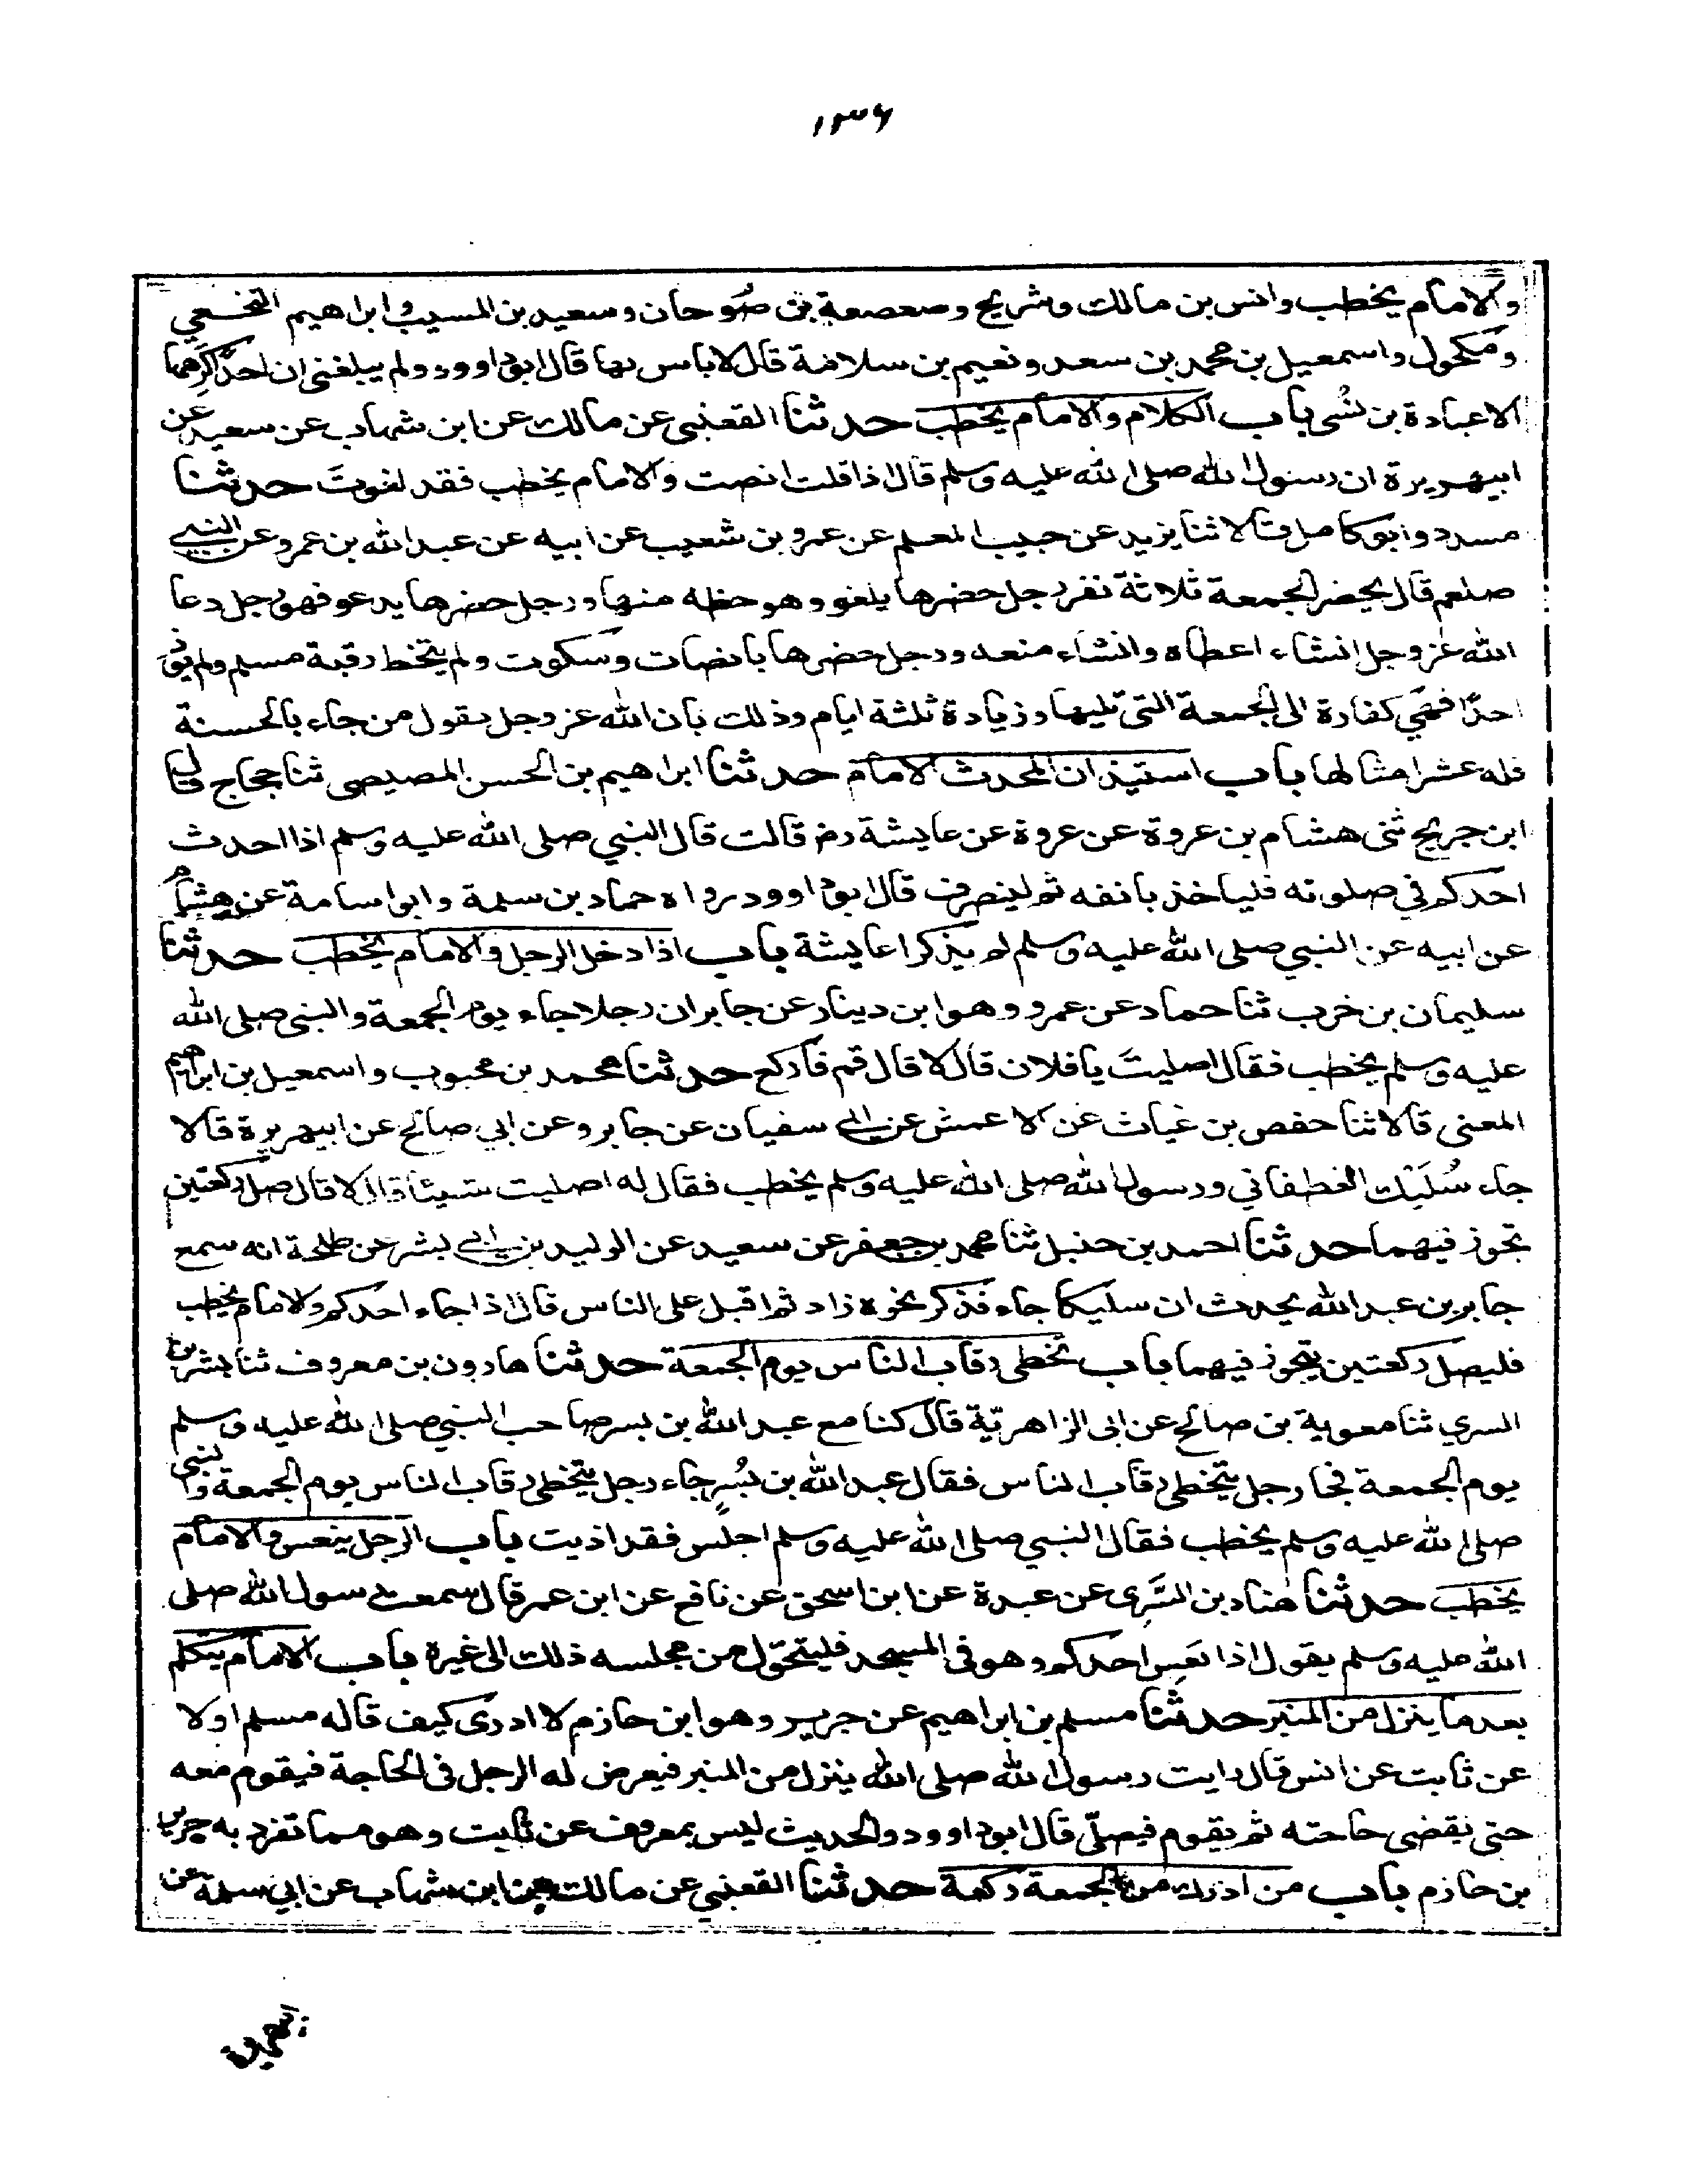 ١٣٦
والامام يخطب وانس بن مالك وشريح وصعصعة بن صُوحان وسعيد بن المسيب وابراهيم النخعي
ومكحول واسمعيل بن محمد بن سعد ونعيم بن سلامة قال لاباس بها قال ابوداوود ولم يبلغني ان احدًا كرهها
الاعبادة بن نُسى باب الكلام والامام يخطب حدثنا القعنبى عن مالك عن ابن شهاب عن سعيد عن
ابيهريرة ان رسول الله صلى الله عليه وسلم قال اذا قلت انصت والامام يخطب فقد لغوتَ حدثنا
مسدد وابو كامل قالا ثنا يزيد عن حبيب المعلم عن عمرو بن شعيب عن ابيه عن عبد الله بن عمرو عن النبي
صلعم قال يحضر الجمعة ثلاثة نفر رجل حضرها يلغو وهو حظه منها ورجل حضرها يدعو فهو رجل دعا
الله عزوجل انشاء اعطاه وانشاء منعه ورجل حضرها بانصات وسكوت ولم يتخط رقبة مسلم ولم يؤذ
احدًا فهي كفارة الى الجمعة التى تليها وزيادة ثلثة ايام وذلك بان الله عز وجل يقول من جاء بالحسنة
فله عشر امثالها باب استيذان المحدث الامام حدثنا ابراهيم بن الحسن المصيصى ثنا حجاج قال
ابن جريج ثنى هشام بن عروة عن عروة عن عايشة رض قالت قال النبي صلى الله عليه وسلم اذا احدث
احدكم في صلوته فلياخذ بانفه ثم لينصرف قال ابوداوود رواه حماد بن سلمة وابو اسامة عن هشام
عن ابيه عن النبي صلى الله عليه وسلم لم يذكرا عايشة باب اذا دخل الرجل والامام يخطب حدثنا
سليمان بن خرب ثنا حماد عن عمرو وهو ابن دينار عن جابر ان رجلا جاء يوم الجمعة والنبى صلى الله
عليه وسلم يخطب فقال اصليتَ يا فلان قال لا قال قم فاركع حدثنا محمد بن محبوب واسمعيل بن ابراهيم
المعنى قالا ثنا حفص بن غياث عن الاعمش عن ابي سفيان عن جابر وعن ابي صالح عن ابيهريرة قالا
جاء سُلَيْك الغطفاني ورسول الله صلى الله عليه وسلم يخطب فقال له اصليت شيئا قال لا قال صل ركعتين
تجوز فيهما حدثنا احمد بن حنبل ثنا محمد بن جعفر عن سعيد عن الوليد بن ابي بشر عن طلحة انه سمع
جابر بن عبد الله يحدث ان سليكا جاء فذكر نحوه زاد ثم اقبل على الناس قال اذا جاء احدكم والامام يخطب
فليصل ركعتين يتجوز فيهما باب تخطى رقاب الناس يوم الجمعة حدثنا هارون بن معروف ثنا بشر بن
السري ثنا معوية بن صالح عن ابى الزاهريّة قال كنا مع عبد الله بن بسر صاحب النبي صلى الله عليه وسلم
يوم الجمعة فجا رجل يتخطى رقاب الناس فقال عبد الله بن بُسرٍ جاء رجل يتخطى رقاب الناس يوم الجمعة والنبى
صلى الله عليه وسلم يخطب فقال النبي صلى الله عليه وسلم اجلس فقد اذيت باب الرجل ينعس والامام
يخطب حدثنا هناد بن السَّرى عن عبدة عن ابن اسحق عن نافع عن ابن عمر قال سمعت رسول الله صلى
الله عليه وسلم يقول اذا نَعِس احدكم وهو فى المسجد فليتحوّل من مجلسه ذلك الى غيره باب الامام يتكلم
بعد ما ينزل من المنبر حدثنا مسلم بن ابراهيم عن جرير وهو ابن حازم لا ادرى كيف قاله مسلم اولا
عن ثابت عن انس قال رايت رسول الله صلى الله ينزل من المنبر فيعرض له الرجل فى الحاجة فيقوم معه
حتى يقضى حاجته ثم يقوم فيصلّى قال ابوداوود والحديث ليس بمعروف عن ثابت وهو مما تفرد به جرير
بن حازم باب من ادرك من الجمعة ركعة حدثنا القعنبي عن مالك عن ابن شهاب عن ابي سلمة عن